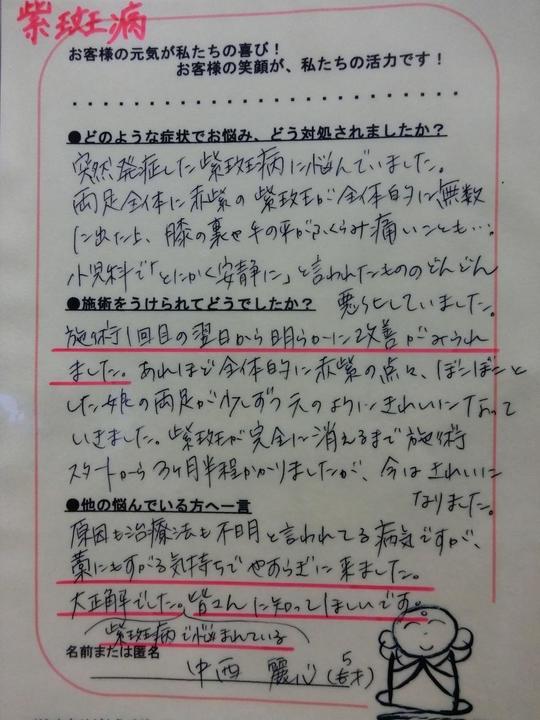 紫斑病
お客様の元気が私たちの喜び！
お客様の笑顔が、私たちの活力です！
●どのような症状でお悩み、どう対処されましたか？
突然発症した紫斑病に悩んでいました。
両足全体に赤紫の紫斑が全体的に無数
に出た上、膝の裏や手の平がふくらみ痛いことも…。
小児科で「とにかく安静に」と言われたもののどんどん
悪化していました。
●施術をうけられてどうでしたか？
施術1回目の翌日から明らかに改善がみられ
ました。あれほど全体的に赤紫の点々、ぼこぼこと
した娘の両足が少しずつ元のようにきれいになって
いきました。紫斑が完全に消えるまで施術
スタートから3ヶ月半程かかりましたが、今はきれいに
なりました。
●他の悩んでいる方へ一言
原因も治療法も不明と言われてる病気ですが、
藁にもすがる気持ちでやすらぎに来ました。
大正解でした。皆さんに知ってほしいです。
紫斑病で悩まれている
名前または匿名
中西 麗心(5才)